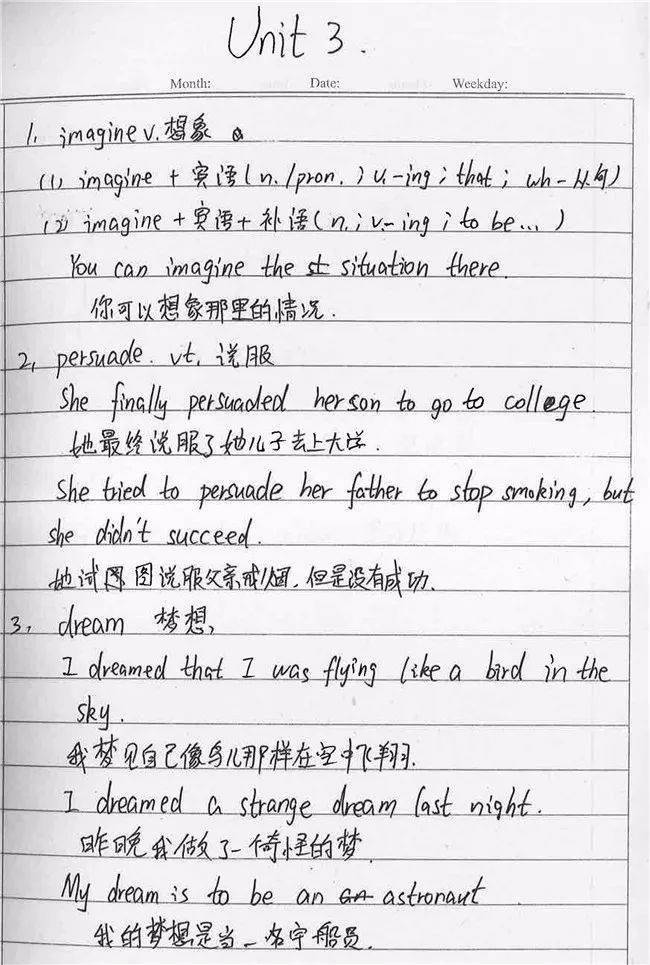 Unit 3.
Month: Date: Weekday:
1, imagine v. 想象
(1) imagine + 宾语(n./pron.; v-ing; that; wh-从句)
(2) imagine + 宾语 + 补语(n.; v-ing; to be...)
You can imagine the situation there.
你可以想象那里的情况.
2, persuade. vt. 说服
She finally persuaded her son to go to college.
她最终说服了她儿子去上大学.
She tried to persuade her father to stop smoking, but
she didn't succeed.
她试图说服父亲戒烟, 但是没有成功.
3, dream 梦想,
I dreamed that I was flying like a bird in the
sky.
我梦见自己像鸟儿那样在空中飞翔.
I dreamed a strange dream last night.
昨晚我做了一奇怪的梦
My dream is to be an astronaut
我的梦想是当一名宇船员.